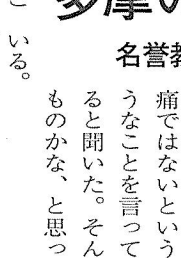 多摩の
名誉教
痛ではないという
うなことを言って
ると聞いた。そん
ものかな、と思っ
いる。